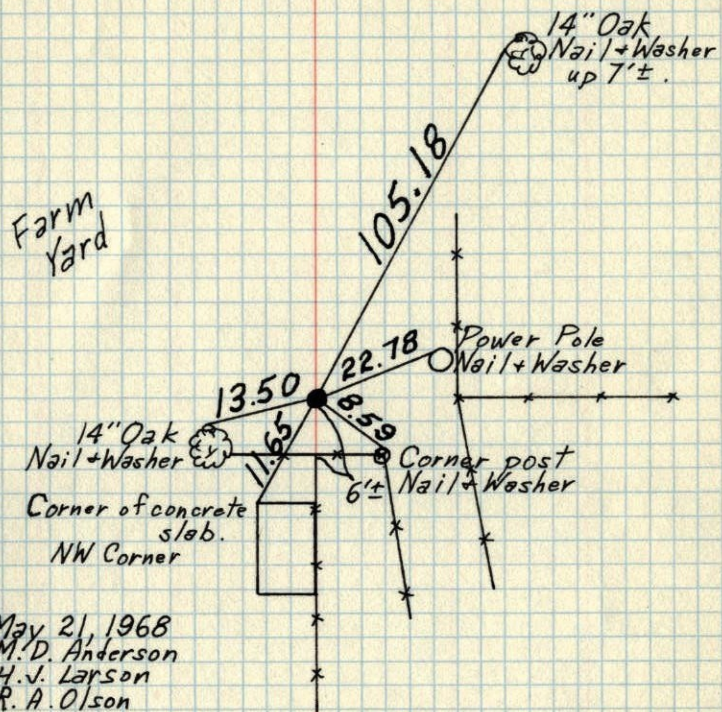 14" Oak
Nail + Washer
up 7'±.
105.18
Farm
Yard
Power Pole
Nail + Washer
22.78
13.50
8.59
11.65
14" Oak
Nail + Washer
6'±
Corner post
Nail + Washer
Corner of concrete
slab.
NW Corner
May 21, 1968
M.D. Anderson
H.J. Larson
R.A. Olson